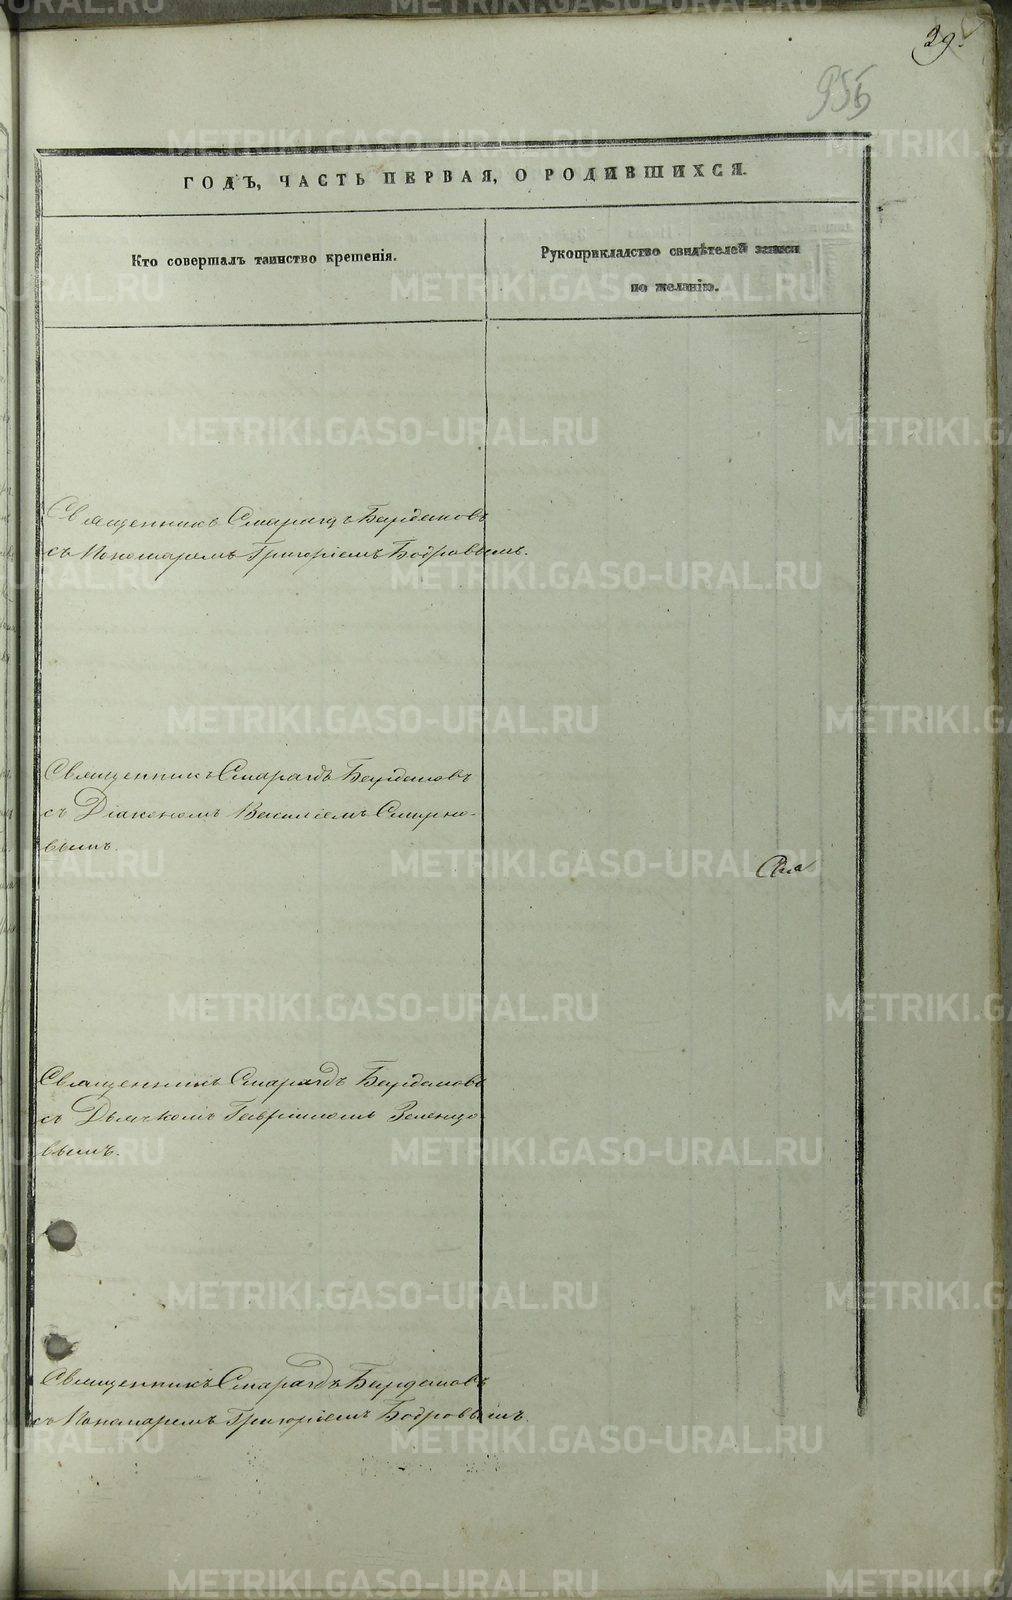 29.
956
ГОДЪ, ЧАСТЬ ПЕРВАЯ, О РОДИВШИХСЯ.
Кто совершалъ таинство крещенія.
Рукоприкладство свидѣтелей записи
по желанію.
Священникъ Смарагдъ Бурдаковъ
съ Пономаремъ Григоріемъ Бодровымъ.
Священникъ Смарагдъ
съ Діакономъ Василіемъ Смирно-
вымъ.
Священникъ Смарагдъ
съ Дьячкомъ Гавріиломъ Зеленцо
вымъ.
Священникъ Смарагдъ
съ Пономаремъ Григоріемъ Бодровымъ.
METRIKI.GASO-URAL.RU